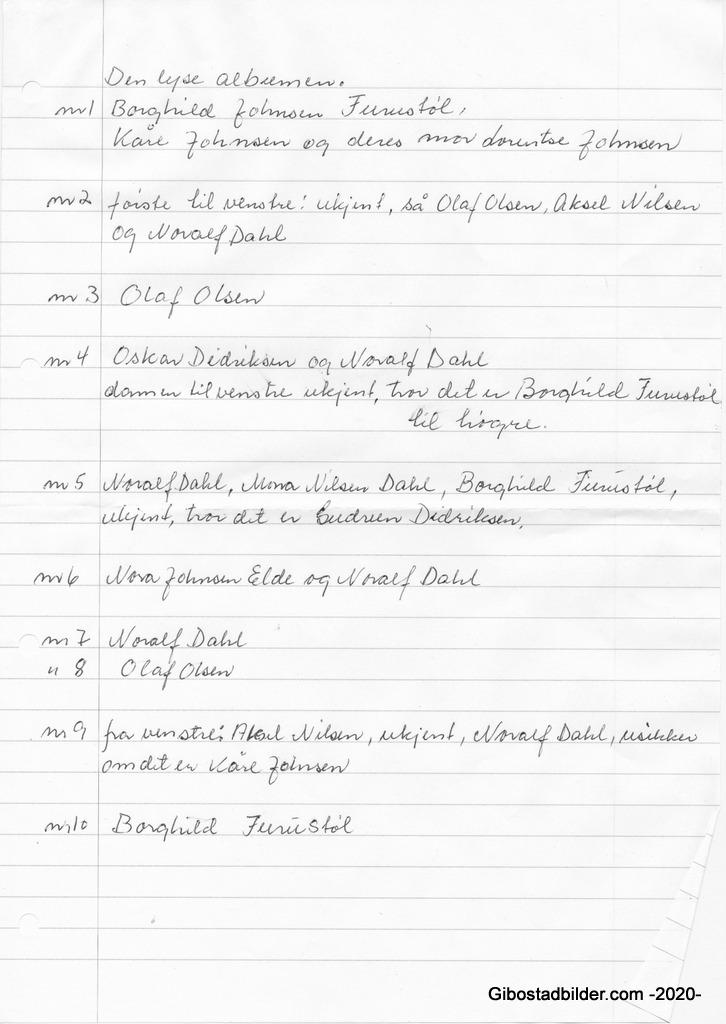 Den lyse albumen.
nr 1 Borghild Johnsen Furustøl,
Kåre Johnsen og deres mor Dorentse Johnsen
nr 2 første til venstre: ukjent, så Olaf Olsen, Aksel Nilsen
og Noralf Dahl
nr 3 Olaf Olsen
nr 4 Oskar Didriksen og Noralf Dahl
damen til venstre ukjent, tror det er Borghild Furustøl
til høgre.
nr 5 Noralf Dahl, Mona Nilsen Dahl, Borghild Furustøl,
ukjent, tror det er Gudrun Didriksen.
nr 6 Nora Johnsen Elde og Noralf Dahl
nr 7 Noralf Dahl
" 8 Olaf Olsen
nr 9 fra venstre: Aksel Nilsen, ukjent, Noralf Dahl, usikker
om det er Kåre Johnsen
nr 10 Borghild Furustøl
Gibostadbilder.com -2020-